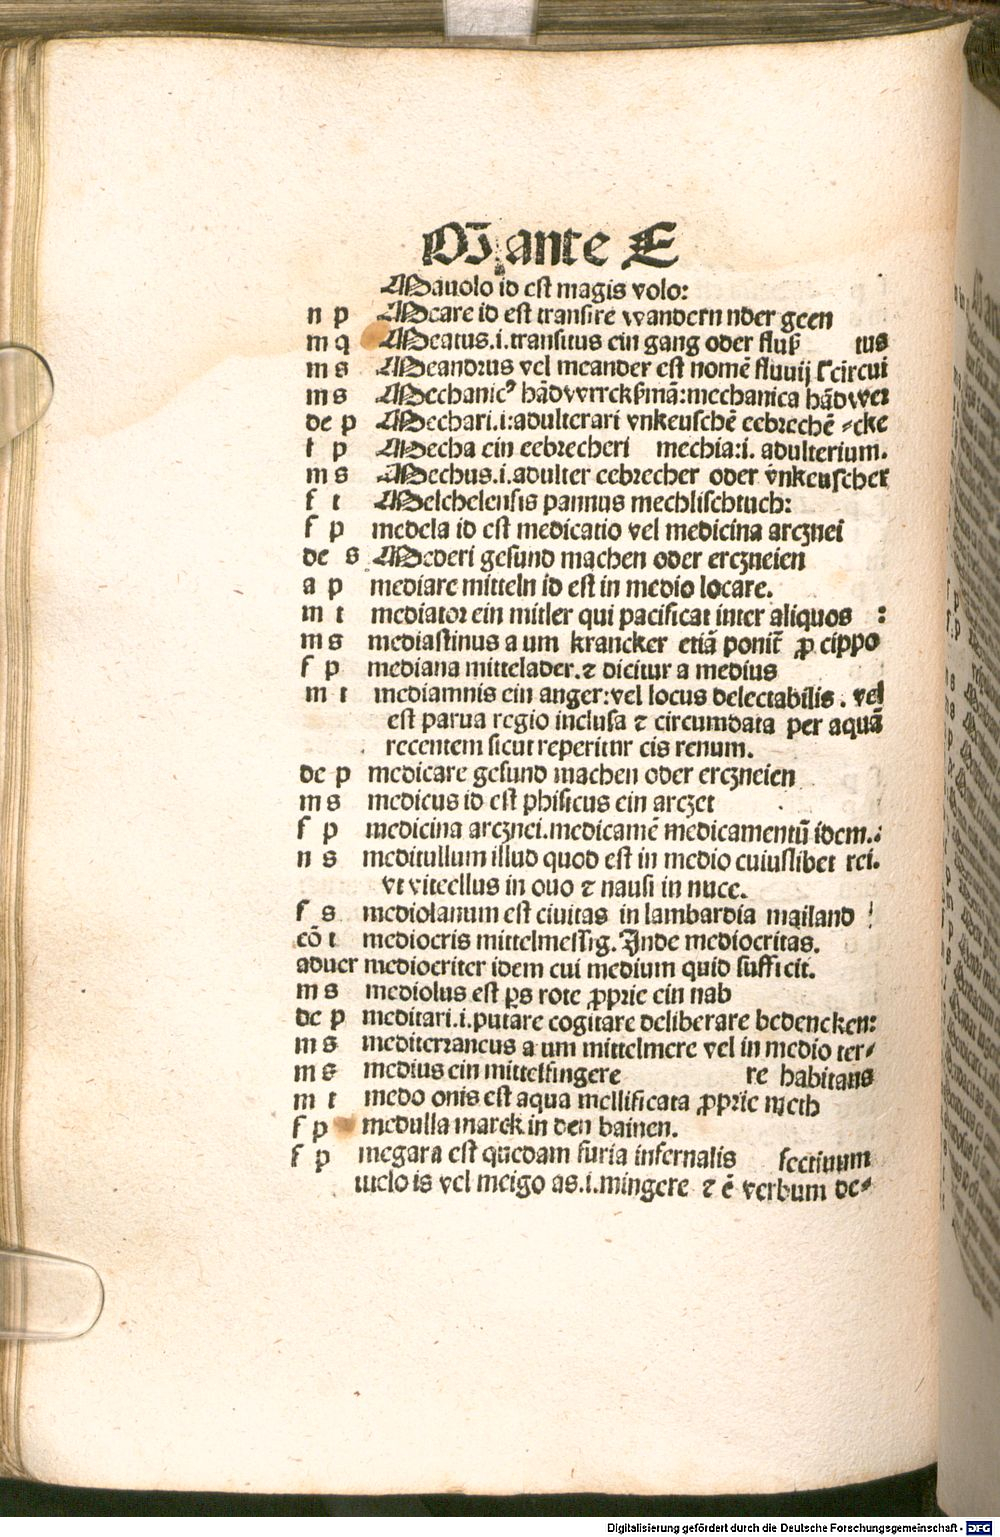 M ante E
Mauolo id est magis volo:
n p Meare id est transire wandern nder geen
m q Meatus.i.transitus ein gang oder fluß tus
m s Meandrus vel meander est nomē fluuij ſ circui
m s Mechanicꝰ hādwrrckßmā:mechanica hādwer
de p Mechari.i:adulterari vnkeuschē eebrechē ⸗cke
f p Mecha ein eebrecheri mechia:i. adulterium.
m s Mechus.i.adulter eebrecher oder vnkeuscher
f t Melchelensis pannus mechlischtuch:
f p medela id est medicatio vel medicina arcznei
de s Mederi gesund machen oder erczneien
a p mediare mitteln id est in medio locare.
m t mediator ein mitler qui pacificat inter aliquos :
m s mediastinus a um krancker etiā ponit̄ ꝓ cippo
f p mediana mittelader.⁊ dicitur a medius
m t mediamnis ein anger:vel locus delectabilis. vel
est parua regio inclusa ⁊ circumdata per aquā
recentem sicut reperitur cis renum.
de p medicare gesund machen oder erczneien
m s medicus id est phisicus ein arczet
f p medicina arcznei.medicamē medicamentū idem.:
n s meditullum illud quod est in medio cuiuslibet rei.
vt viteellus in ouo ⁊ nausi in nuce.
f s mediolanum est ciuitas in lambardia mailand
cō t mediocris mittelmessig. Inde mediocritas.
aduer mediocriter idem cui medium quid sufficit.
m s mediolus est ꝑs rote ꝓprie ein nab
de p meditari.i.putare cogitare deliberare bedencken:
m s mediterraneus a um mittelmere vel in medio ter⸗
m s medius ein mittelfingere re habitans
m t medo onis est aqua mellificata ꝓprie meth
f p medulla marck in den bainen.
f p megara est quedam furia infernalis fectiuum
meio is vel meigo as.i.mingere ⁊ ē verbum de⸗
Digitalisierung gefördert durch die Deutsche Forschungsgemeinschaft - DFG